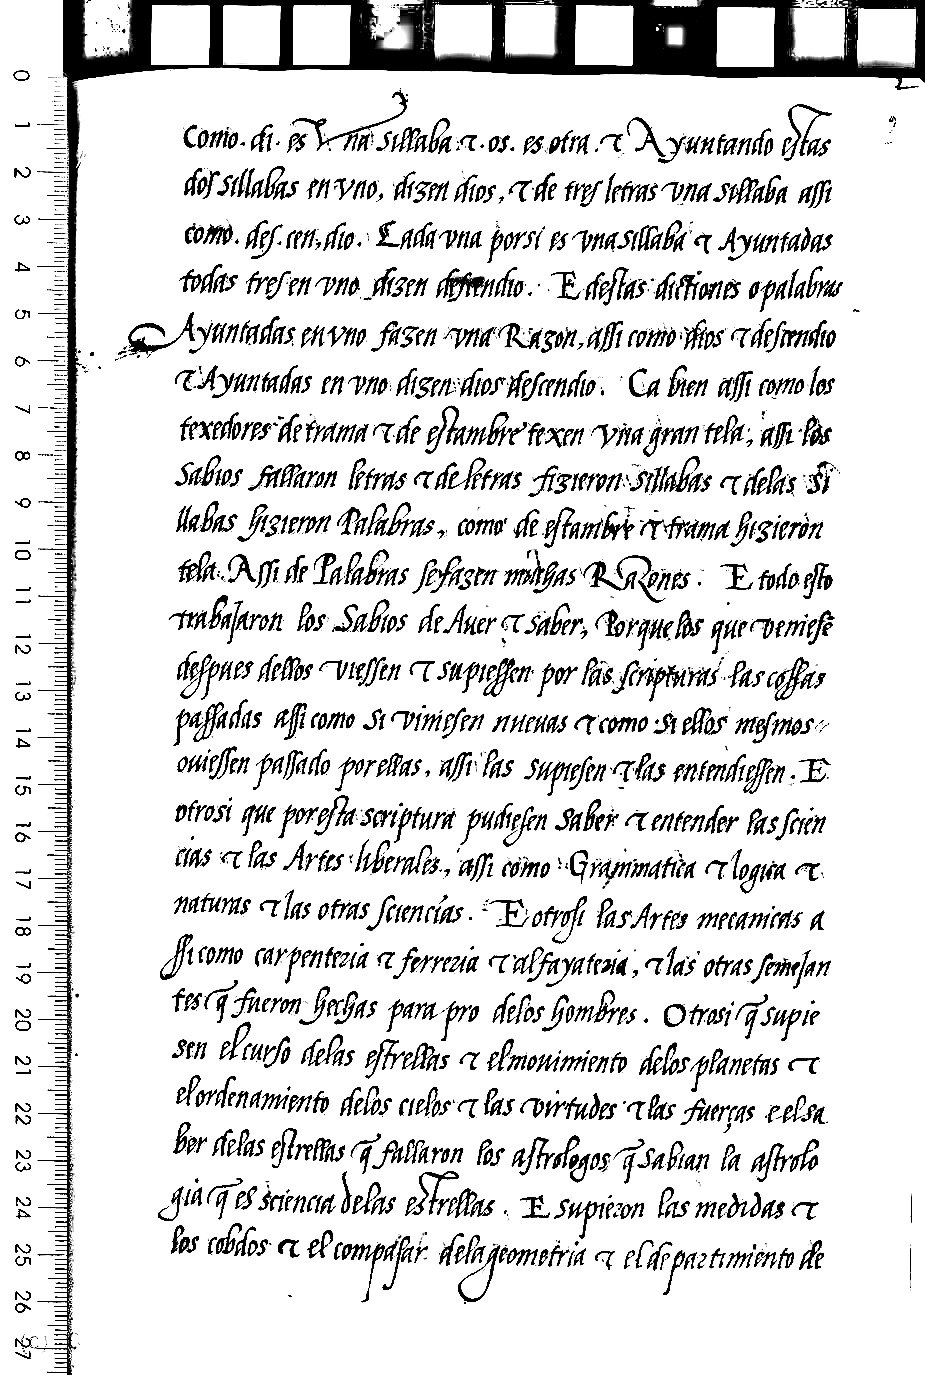 2
Como. di. es Vna sillaba τ. os. es otra. τ Ayuntando estas
dos sillabas en vno, dizen dios, τ de tres letras vna sillaba assi
como. des. cen, dio. Cada vna por si es vna sillaba τ Ayuntadas
todas tres en vno dizen descendio. E destas dictiones o palabras
Ayuntadas en vno fazen vna Razon, assi como dios τ descendio
τ Ayuntadas en vno dizen dios descendio. Ca bien assi como los
texedores de trama τ de estambre texen vna gran tela, assi los
Sabios fallaron letras τ de letras fizieron sillabas τ delas Si
llabas hizieron Palabras, como de estambre τ trama hizieron
tela. Assi de Palabras se fazen muchas RaZones. E todo esto
trabajaron los Sabios de Auer τ saber, Porque los que veniese
despues dellos viessen τ supiessen por las scripturas las cossas
passadas assi como si viniesen nueuas τ como si ellos mesmos
ouiessen passado por ellas, assi las supiesen τ las entendiessen. E
otrosi que por esta scriptura pudiesen saber τ entender las scien
cias τ las Artes liberales, assi como Grammatica τ logica τ
naturas τ las otras sciencias. E otrosi las Artes mecanicas a
ssi como carpenteria τ ferreria τ alfayateria, τ las otras semejan
tes q̃ fueron hechas para pro delos hombres. Otrosi q̃ supie
sen el curso delas estrellas τ el mouimiento delos planetas τ
el ordenamiento delos cielos τ las virtudes τ las fuerças e el sa
ber delas estrellas q̃ fallaron los astrologos q̃ sabian la astrolo
gia q̃ es sciencia delas estrellas. E supieron las medidas τ
los cobdos τ el compasar dela geometria τ el departimiento de